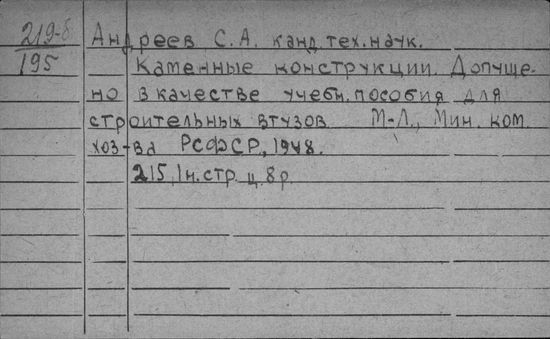 219-8
195
Андреев С.А. канд.тех.наук.
Каменные конструкции. Допуще-
но в качестве учебн.пособия для
строительных втузов М-Л., Мин. ком.
хоз-ва РСФСР, 1948.
215,1н.стр. ц.8р.